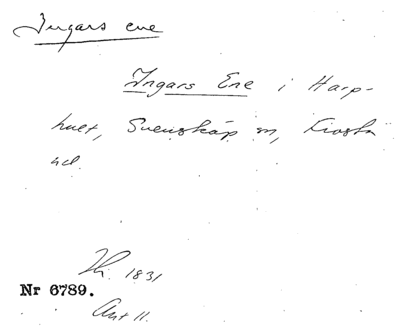 Ingars ene
Ingars Ene i Harp-
huet, Svenskåp sn, Frosta
hd.
Th. 1831
Nr 6789.
Ant 11.